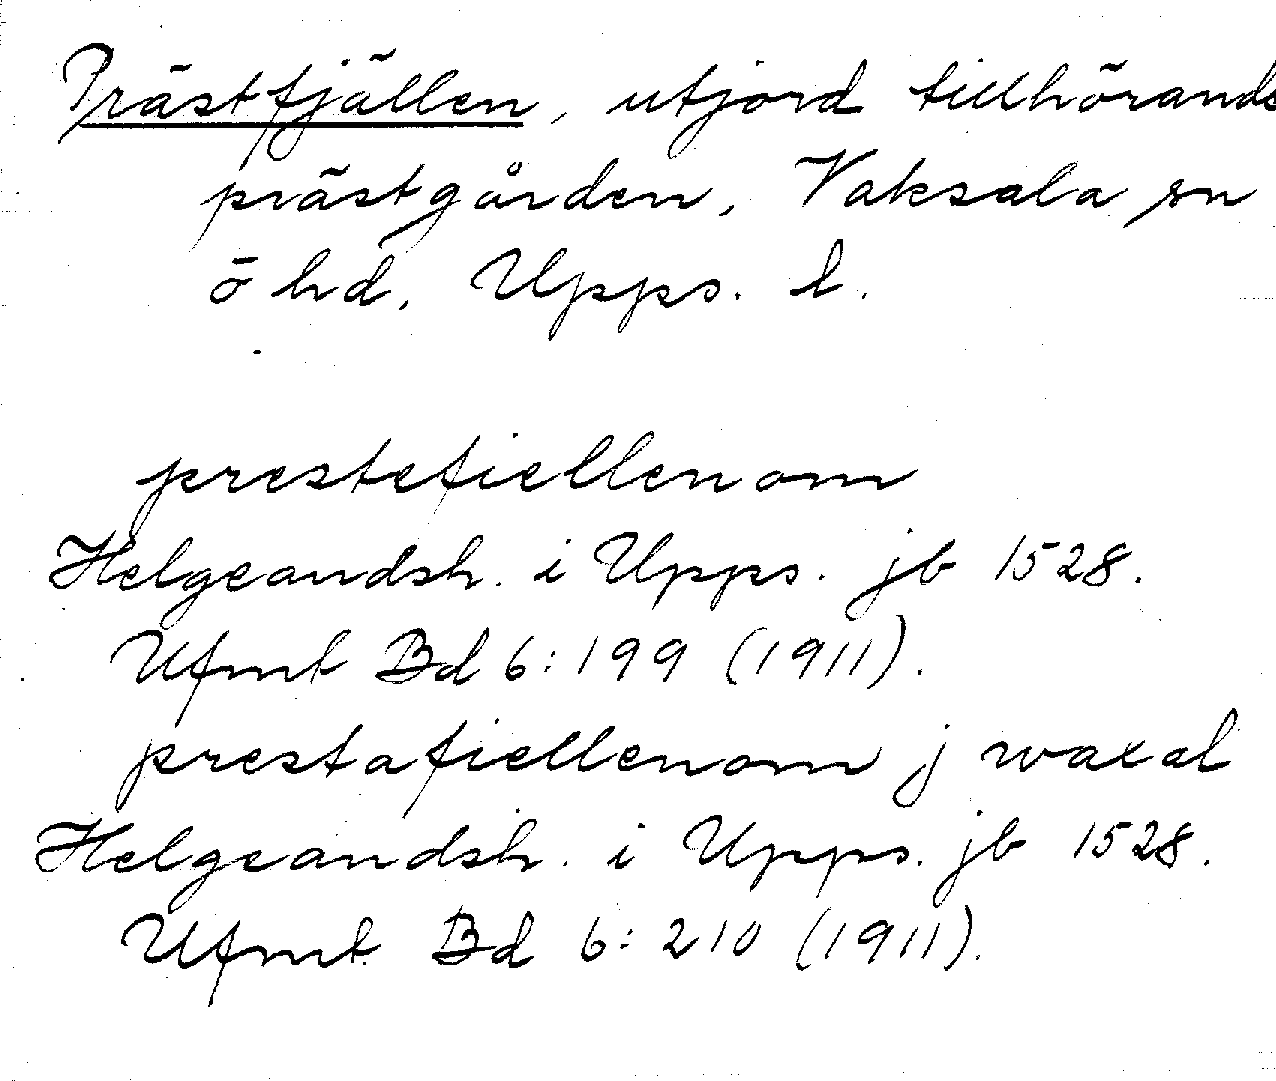 Prästfjällen, utjord tillhörande
prästgården, Vaksala sn
ö hd, Upps. l.
prestefiellenom
Helgeandsh. i Upps. jb 1528.
Ufmt Bd 6:199 (1911).
prestafiellenom j waxal
Helgeandsh. i Upps. jb 1528.
Ufmt Bd 6:210 (1911).